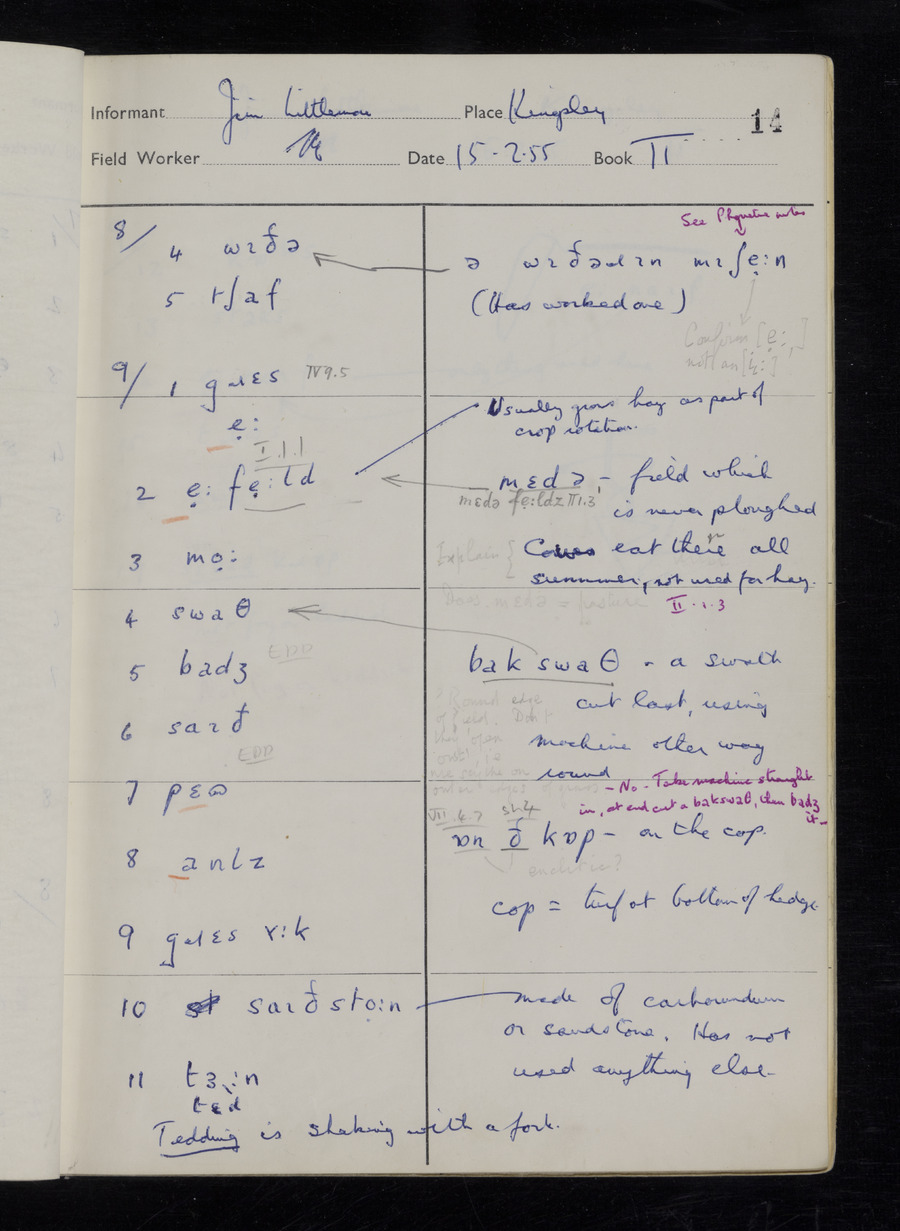 Informant Jim Littlemore Place Kingsley 14
Field Worker Date 15-2-55 Book II
See Phonetic notes
8/ 4 wɪðə
ə wɪðədɪn mɪʃẹːn
5 tʃaf
(Has worked one)
Confirm [ẹː,]
not an [iː]
9/ 1 gɹɛs IV 9.5
Usually grows hay as part of
crop rotation.
ẹː
I.1.1
2 ẹː fẹːld
mɛdə - field which
mɛdə fẹːldz II 1.3
is never ploughed
3 mọː
Explain { Cows eat there all
summer, not used for hay.
Does mɛdə = pasture
II.1.3
4 swaθ
5 badʒ EDD
bak swaθ - a swath
cut last, using
6 saɪð
EDD
machine other way
round
? Round edge
of field. Don't
they open
out, i.e.
use scythe on
outer edges of grass
- No - Take machine straight
in, at end cut a bakswaθ, then badʒ
it -
7 pɛɷ
VII.4.7
ɒn ð kɒp - on the cop.
enclitic?
8 anlz
cop = turf at bottom of hedge.
9 gɹɛs ɤːk
10 saɪðstọːn
made of carborundum
or sandstone. Has not
used anything else-
11 tɜːn
tɛd
Tedding is shaking with a fork.